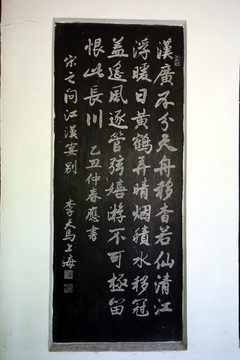 漢廣不分天舟移杳若仙清江
浮暖日黃鶴弄晴烟積水移冠
盖遙風逐管弦嬉游不可極留
恨此長川 乙丑仲春應書
宋之问江漢宴别 李天馬上海